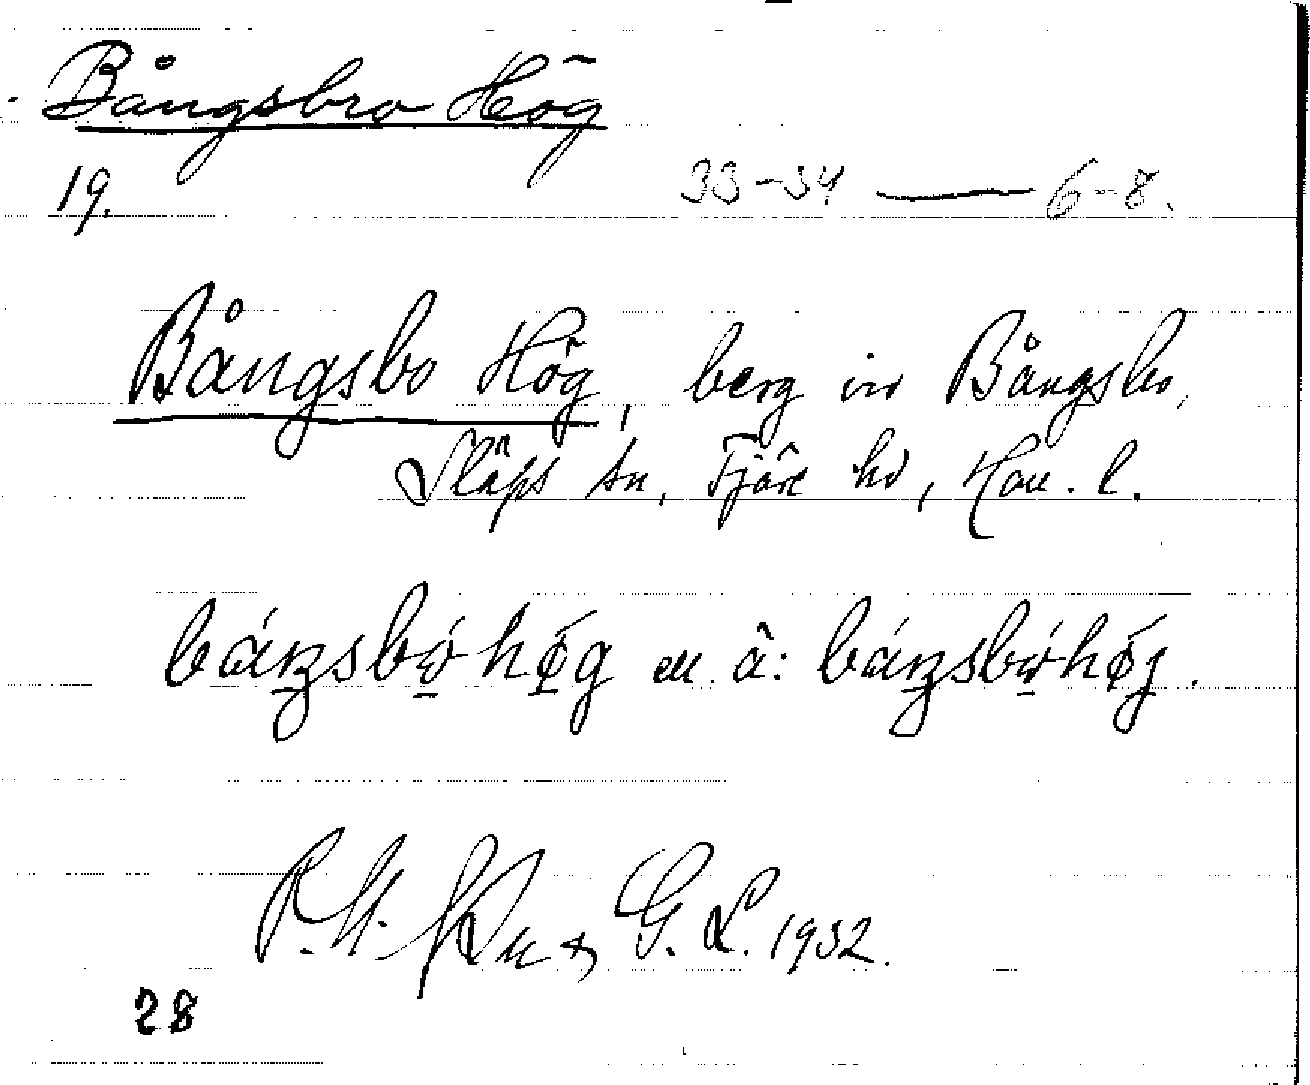 Bångsbro Hög
19. 33-34 — 6-8.
Bångsbo Hög, berg in Bångsbo,
Släps sn, Fjäre hd, Hall. l.
båŋsbo̱ hø̱g m å: båŋsbo̱hø̱j.
G. L. 1932.
28